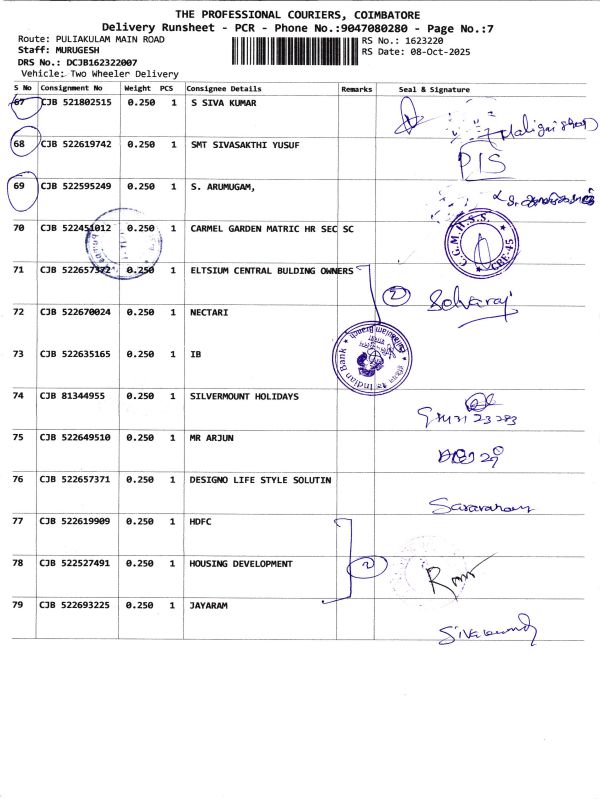 THE PROFESSIONAL COURIERS, COIMBATORE
Delivery Runsheet - PCR - Phone No.:9047080280 - Page No.:7
Route: PULIAKULAM MAIN ROAD
RS No.: 1623220
Staff: MURUGESH
RS Date: 08-Oct-2025
DRS No.: DCJB162322007
Vehicle: Two Wheeler Delivery
S No Consignment No Weight PCS Consignee Details Remarks Seal & Signature
67 CJB 521802515 0.250 1 S SIVA KUMAR
68 CJB 522619742 0.250 1 SMT SIVASAKTHI YUSUF
PIS
69 CJB 522595249 0.250 1 S. ARUMUGAM,
70 CJB 522451012 0.250 1 CARMEL GARDEN MATRIC HR SEC SC
C.G.M.H.S.S. CBE-45
71 CJB 522657372 0.250 1 ELTSIUM CENTRAL BULDING OWNERS
2 Selvaraj
72 CJB 522670024 0.250 1 NECTARI
73 CJB 522635165 0.250 1 IB
Indian Bank
74 CJB 81344955 0.250 1 SILVERMOUNT HOLIDAYS
75 CJB 522649510 0.250 1 MR ARJUN
76 CJB 522657371 0.250 1 DESIGNO LIFE STYLE SOLUTIN
77 CJB 522619909 0.250 1 HDFC
78 CJB 522527491 0.250 1 HOUSING DEVELOPMENT
2
79 CJB 522693225 0.250 1 JAYARAM